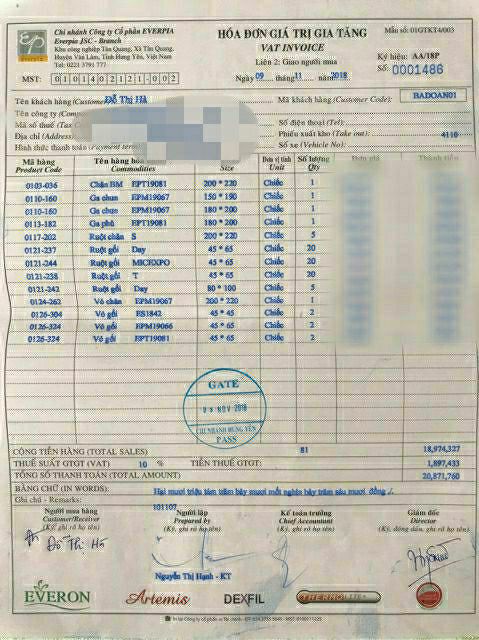 Chi nhánh Công ty Cổ phần EVERPIA
Everpia JSC - Branch
Khu công nghiệp Tân Quang, Xã Tân Quang,
Huyện Văn Lâm, Tỉnh Hưng Yên, Việt Nam
Tel: 0221 3791 777
MST: 0101402121-002
HÓA ĐƠN GIÁ TRỊ GIA TĂNG
VAT INVOICE
Liên 2: Giao người mua
Ngày 09 tháng 11 năm 2018
Mẫu số: 01GTKT4/003
Ký hiệu: AA/18P
Số: 0001486
Tên khách hàng (Customer Đỗ Thị Hà
Mã khách hàng (Customer Code): BADOAN01
Tên công ty
Mã số thuế (Tax
Số điện thoại (Tel):
Địa chỉ (Address)
Phiếu xuất kho (Take out): 4110
Hình thức thanh toán
Số xe (Vehicle No):
Mã hàng Tên hàng hóa Đơn vị tính Số lượng
Product Code Commodities Size Unit Qty
0103-036 Chăn BM EPT19081 200 * 220 Chiếc 1
0110-160 Ga chun EPM19067 150 * 190 Chiếc 1
0110-160 Ga chun EPM19067 180 * 200 Chiếc 1
0113-182 Ga phủ EPT19081 180 * 200 Chiếc 1
0117-202 Ruột chăn S 200 * 220 Chiếc 5
0121-237 Ruột gối Day 45 * 65 Chiếc 20
0121-244 Ruột gối MICEXPO 45 * 65 Chiếc 20
0121-258 Ruột gối T 45 * 65 Chiếc 20
0121-242 Ruột gối Day 80 * 100 Chiếc 5
0124-262 Vỏ chăn EPM19067 200 * 220 Chiếc 1
0126-304 Vỏ gối ES1842 45 * 45 Chiếc 2
0126-324 Vỏ gối EPM19066 45 * 65 Chiếc 2
0126-324 Vỏ gối EPT19081 45 * 65 Chiếc 2
GATE
NOV 2018
CHI NHÁNH HƯNG YÊN
PASS
CỘNG TIỀN HÀNG (TOTAL SALES) 81 18,974,327
THUẾ SUẤT GTGT (VAT) 10 % TIỀN THUẾ GTGT: 1,897,433
TỔNG SỐ THANH TOÁN (TOTAL AMOUNT) 20,871,760
BẰNG CHỮ (IN WORDS): Hai mươi triệu tám trăm bảy mươi mốt nghìn bảy trăm sáu mươi đồng ./.
Ghi chú - Remarks: 101107
Người mua hàng Người lập Kế toán trưởng Giám đốc
Customer/Receiver Prepared by Chief Accountant Director
(Ký, ghi rõ họ tên) (Ký, ghi rõ họ tên) (Ký, ghi rõ họ tên) (Ký, đóng dấu, ghi rõ họ tên)
Đỗ Thị Hà
Nguyễn Thị Hạnh - KT
EVERON Artemis DEXFIL